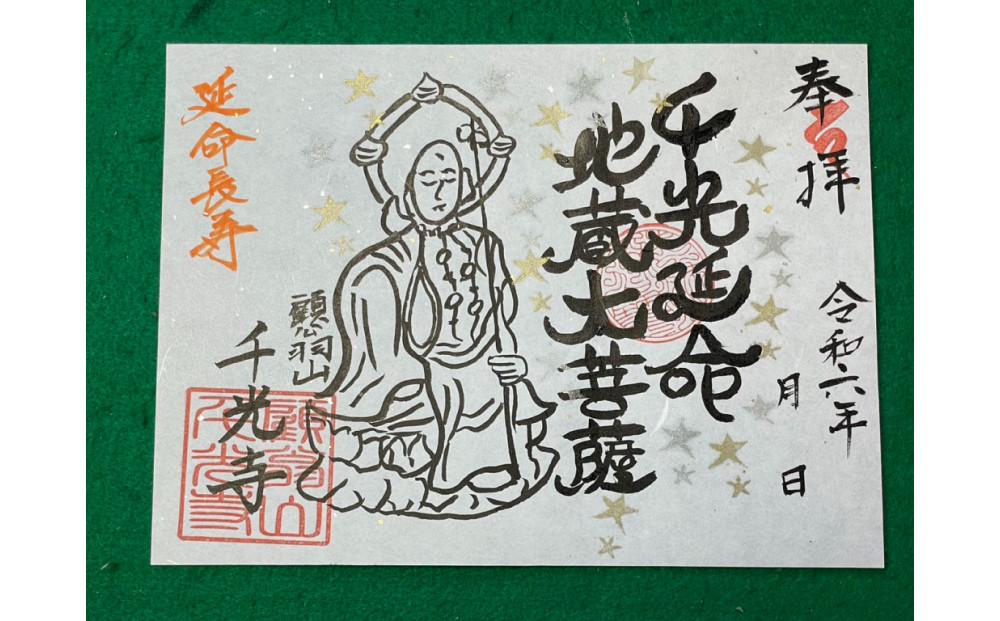 奉拝
令和六年
月 日
千光延命
地蔵大菩薩
延命長寿
千光寺